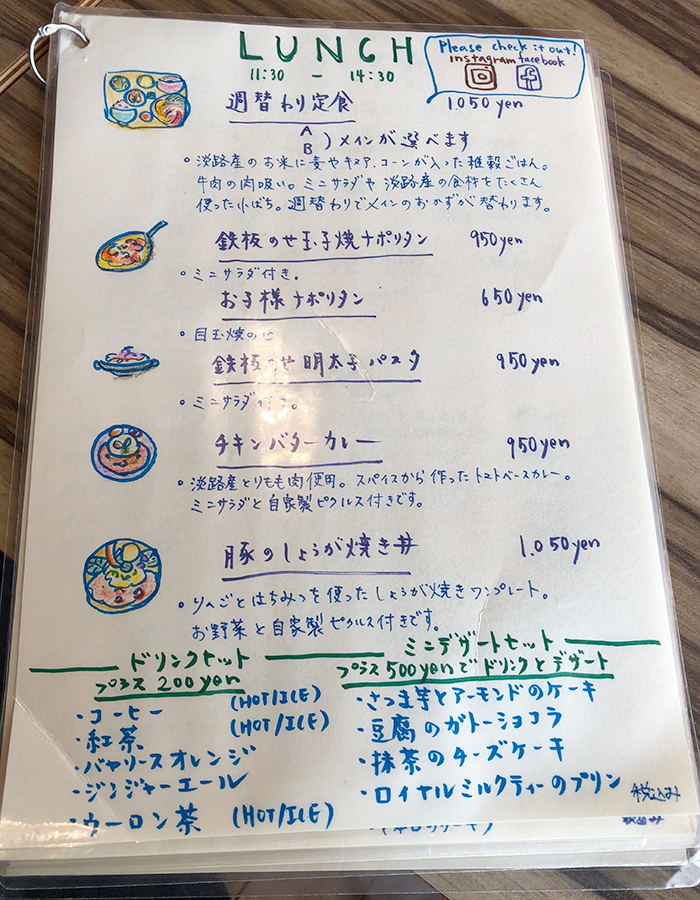 LUNCH
11:30 - 14:30
Please check it out!
instagram facebook
週替わり定食 1.050 yen
A
B ) メインが選べます
◦ 淡路産のお米に麦やキヌア、コーンが入った雑穀ごはん。
牛肉の肉吸い。ミニサラダや淡路産の食材をたくさん
使った小ばち。週替わりでメインのおかずが替わります。
鉄板のせ玉子焼ナポリタン 950yen
◦ ミニサラダ付き。
お子様ナポリタン 650yen
◦ 目玉焼のせ
鉄板のせ明太子パスタ 950yen
◦ ミニサラダ付き。
チキンバターカレー 950yen
◦ 淡路産とりもも肉使用。スパイスから作ったトマトベースカレー。
ミニサラダと自家製ピクルス付きです。
豚のしょうが焼き丼 1.050yen
◦ りんごとはちみつを使ったしょうが焼きワンプレート。
お野菜と自家製ピクルス付きです。
ドリンクセット
プラス 200yen
・コーヒー (HOT/ICE)
・紅茶 (HOT/ICE)
・バヤリースオレンジ
・ジンジャーエール
・ウーロン茶 (HOT/ICE)
ミニデザートセット
プラス500yenでドリンクとデザート
・さつま芋とアーモンドのケーキ
・豆腐のガトーショコラ
・抹茶のチーズケーキ
・ロイヤルミルクティーのプリン
税込み